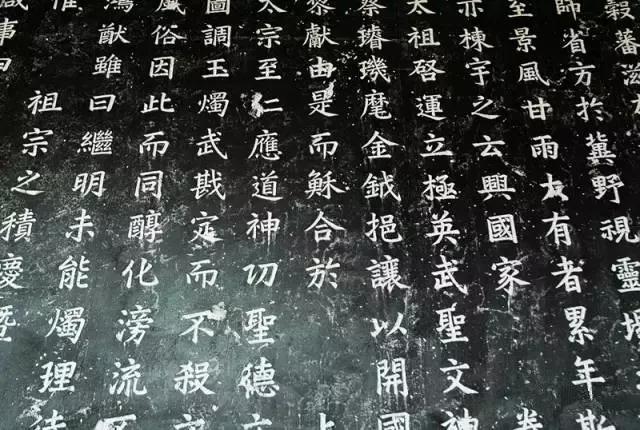 穀蕃滋
師省方於冀野視靈場
至景風甘雨大有者累年斯
亦棟宇之云興國家
太祖啓運立極英武聖文神
祭璿璣麾金鉞挹讓以開國
黎獻由是而穌合於上
太宗至仁應道神功聖德文
圖調玉燭武戡定而不殺文
風俗因此而同醇化滂流
鴻猷雖曰繼明未能燭理
惟祖宗之積慶暨
事曰